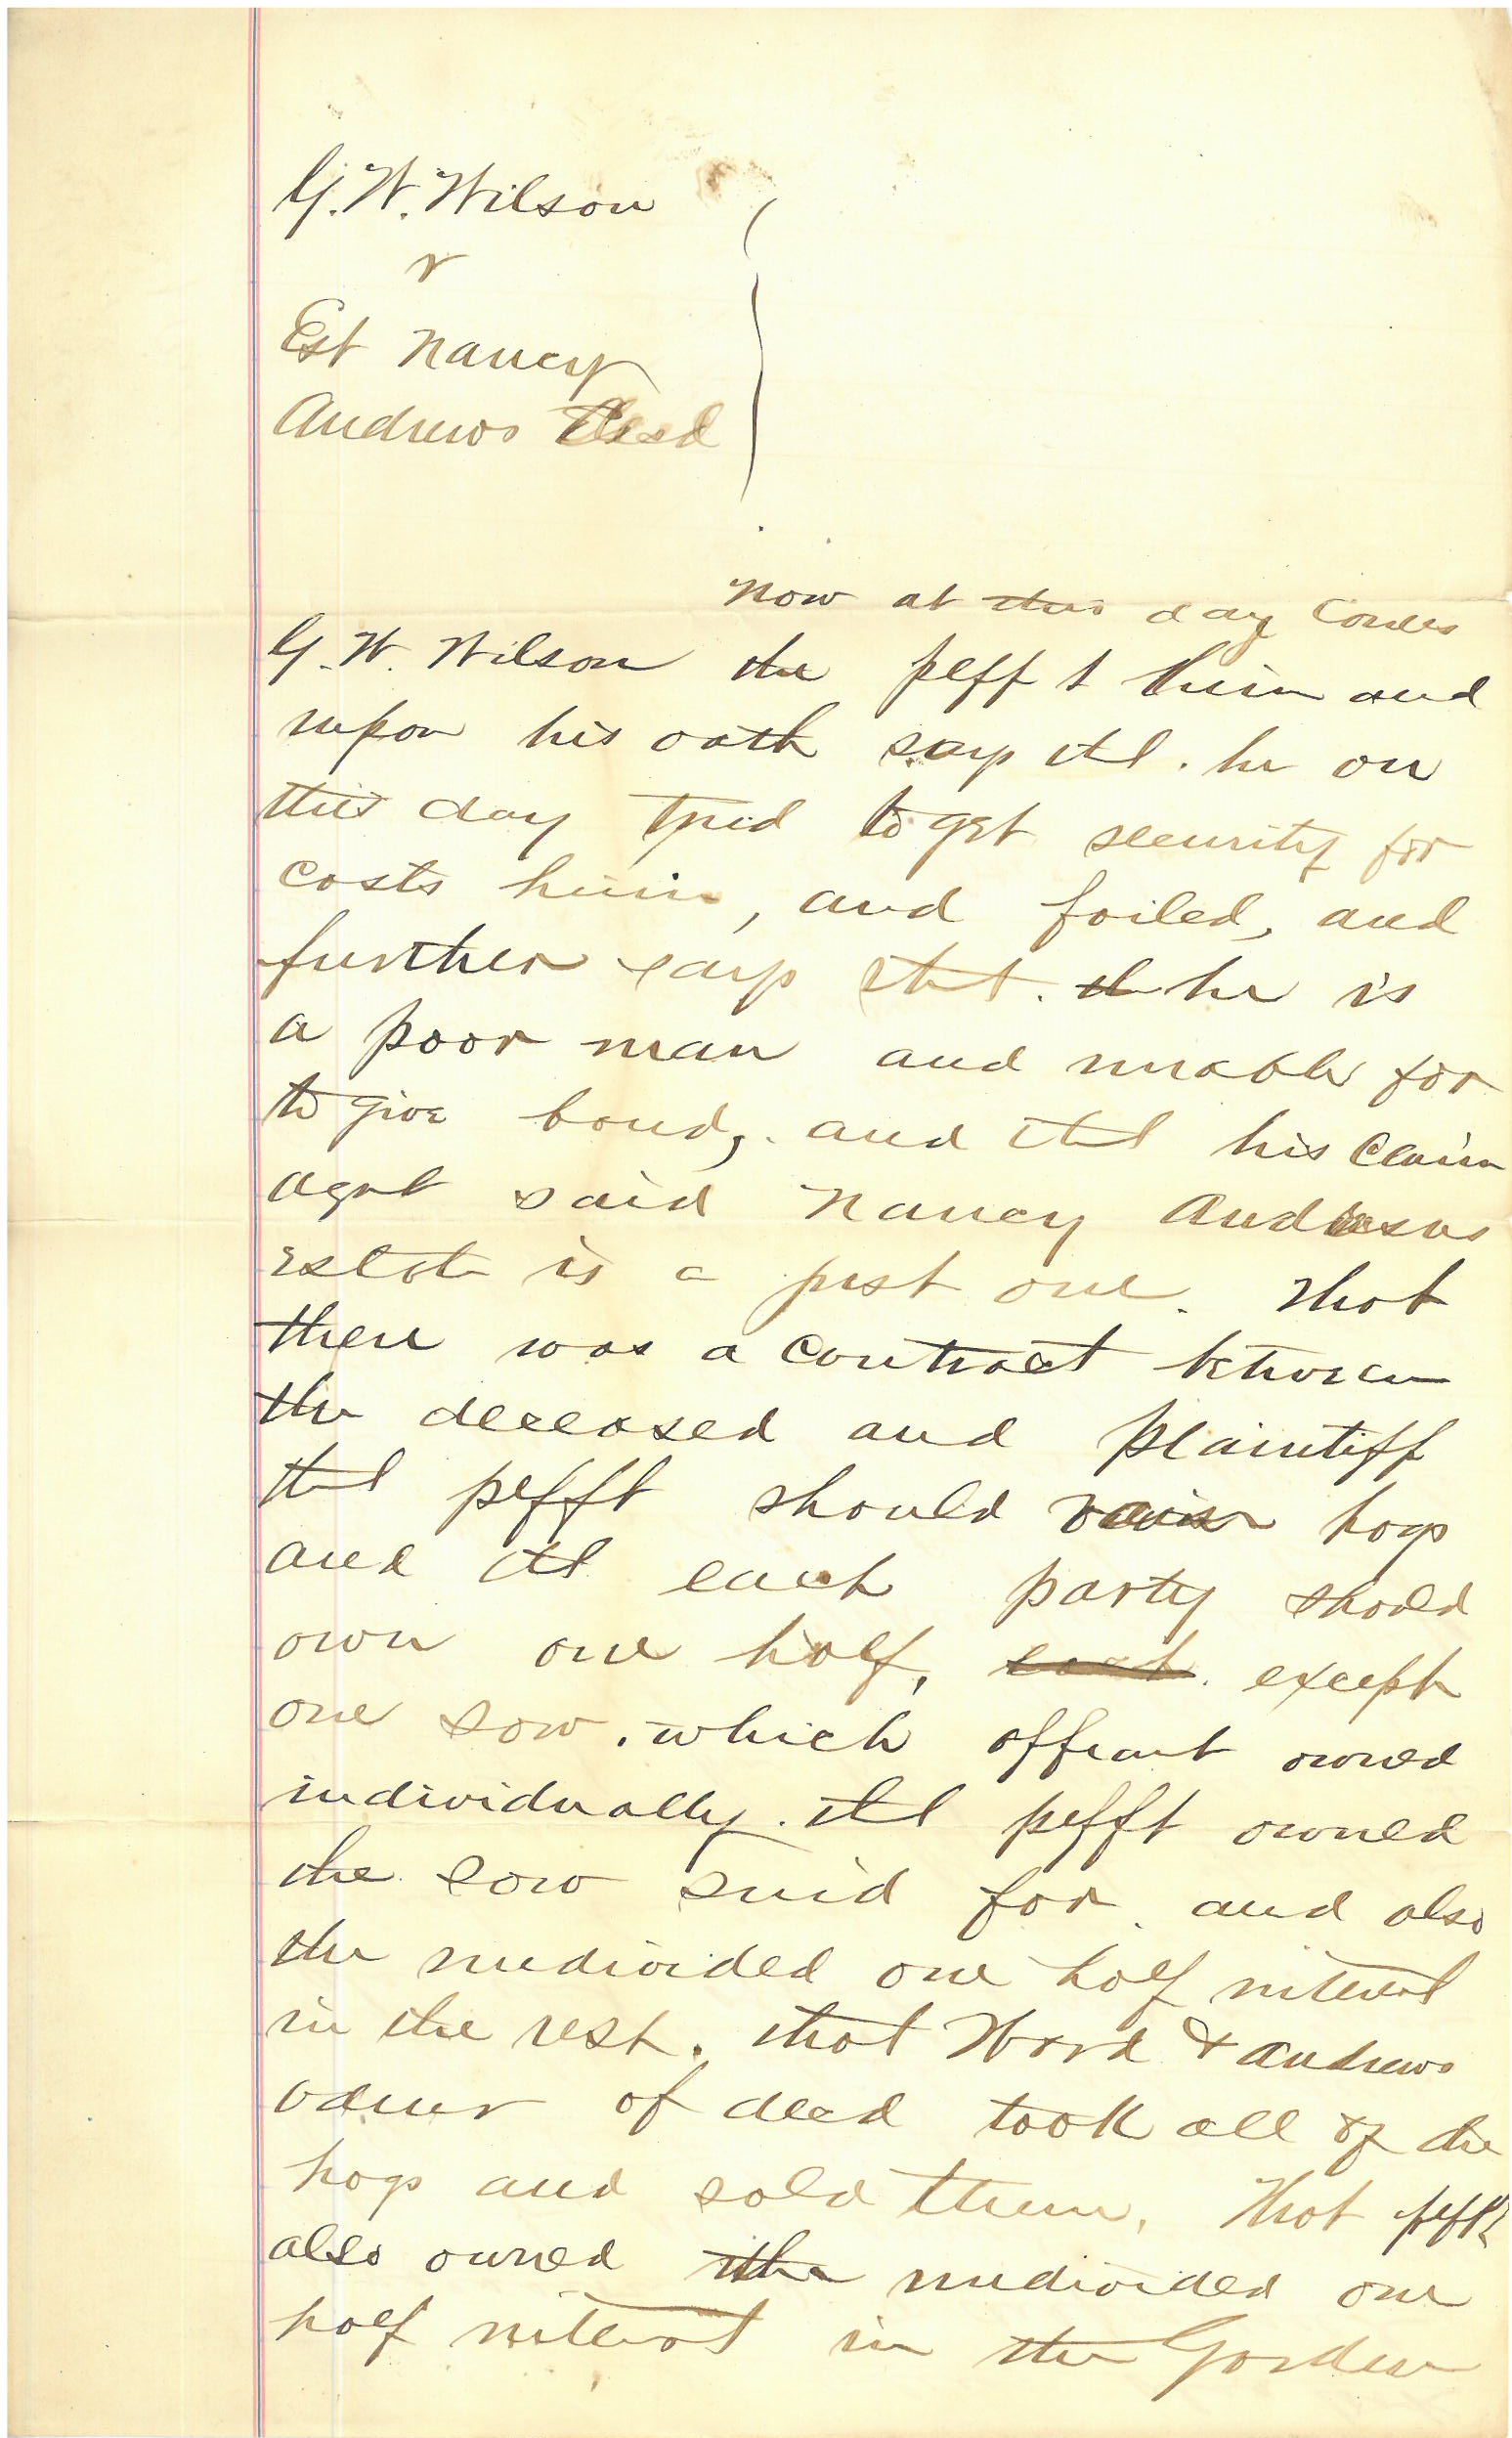 G. W. Wilson
v
Est Nancy
Andrews Decd
Now at this day comes
G. W. Wilson the plfft herein and
upon his oath says that. he on
this day tried to get security for
costs herein, and failed, and
further says that. he is
a poor man and unable for
to give bond, and that his claim
agst said Nancy Andrews
estate is a just one. That
there was a contract between
the deceased and plaintiff
that plfft should raise hogs
and that each party should
own one half, except
one sow. which affiant owned
individually. that plfft owned
the sow sued for and also
the undivided one half interest
in the rest. that Ward & Andrews
admr of decd took all of the
hogs and sold them. That plfft
also owned the undivided one
half interest in the Garden